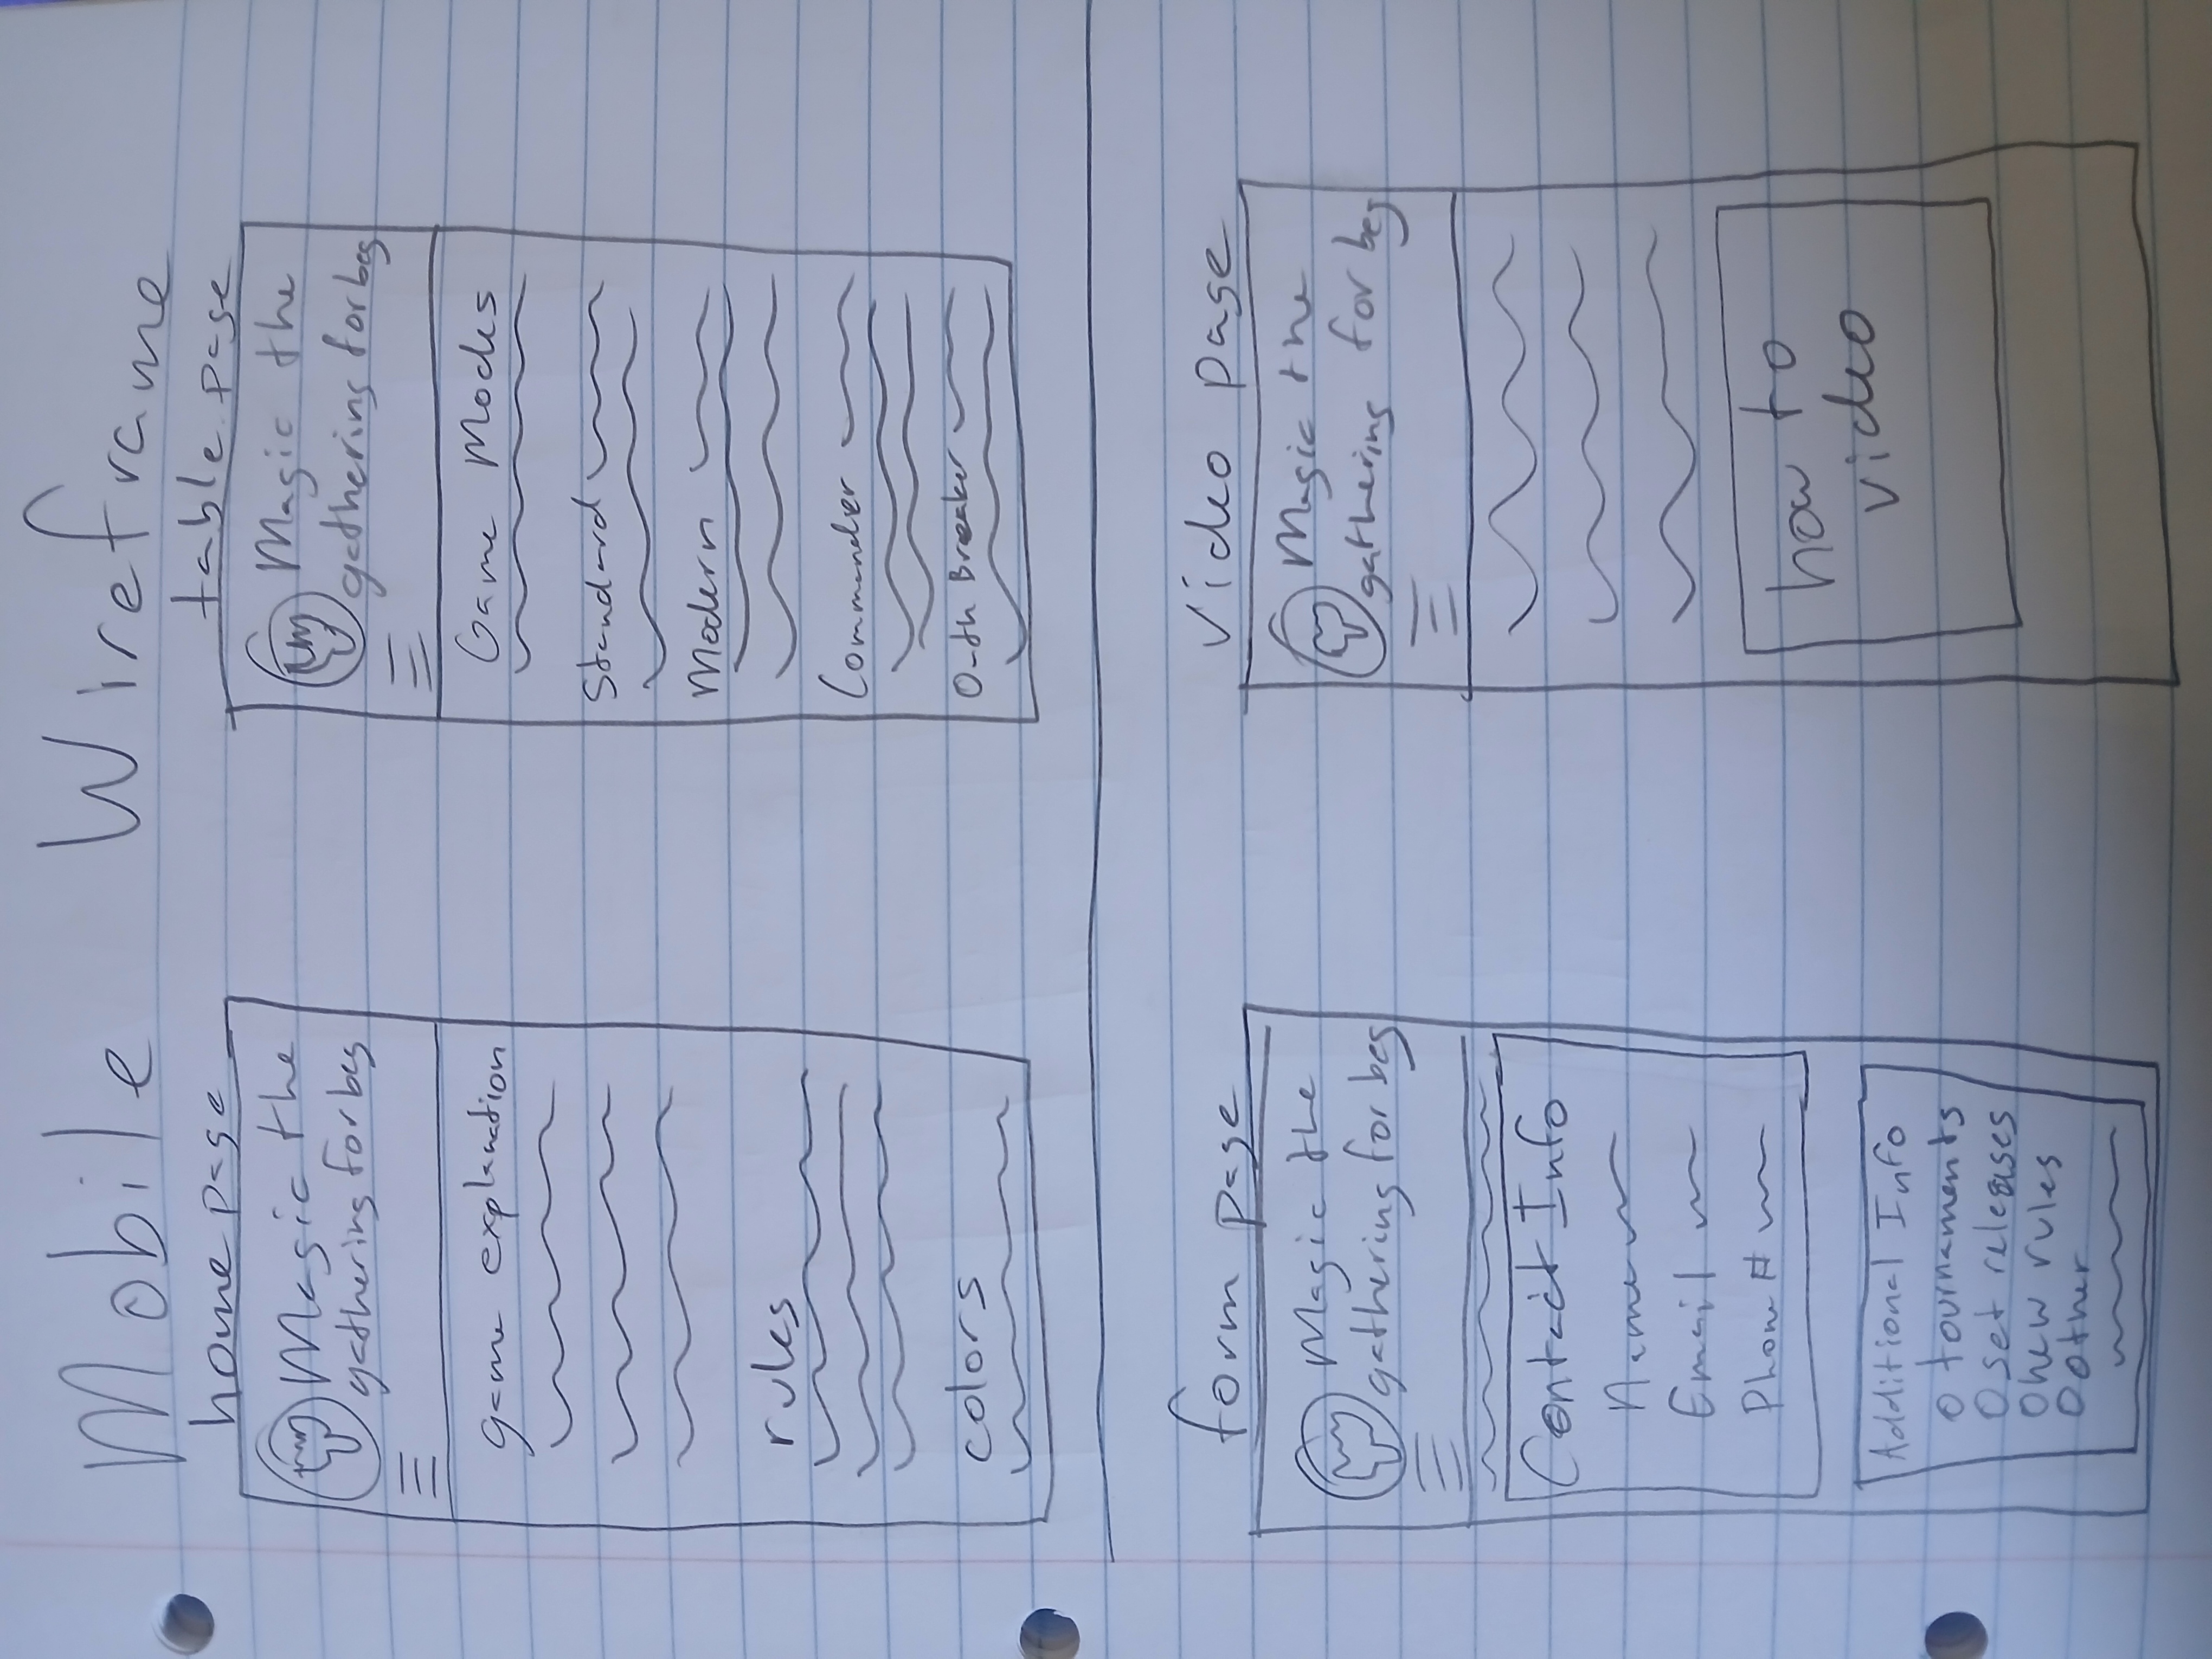 Mobile Wireframe
home page
Magic the
gathering for beg
game explanation
rules
colors
table page
Magic the
gathering for beg
Game Modes
Standard
Modern
Commander
Oath Breaker
form page
Magic the
gathering for beg
Contact Info
Name
Email
Phone #
Additional Info
tournaments
set releases
new rules
other
Video page
Magic the
gathering for beg
how to
video